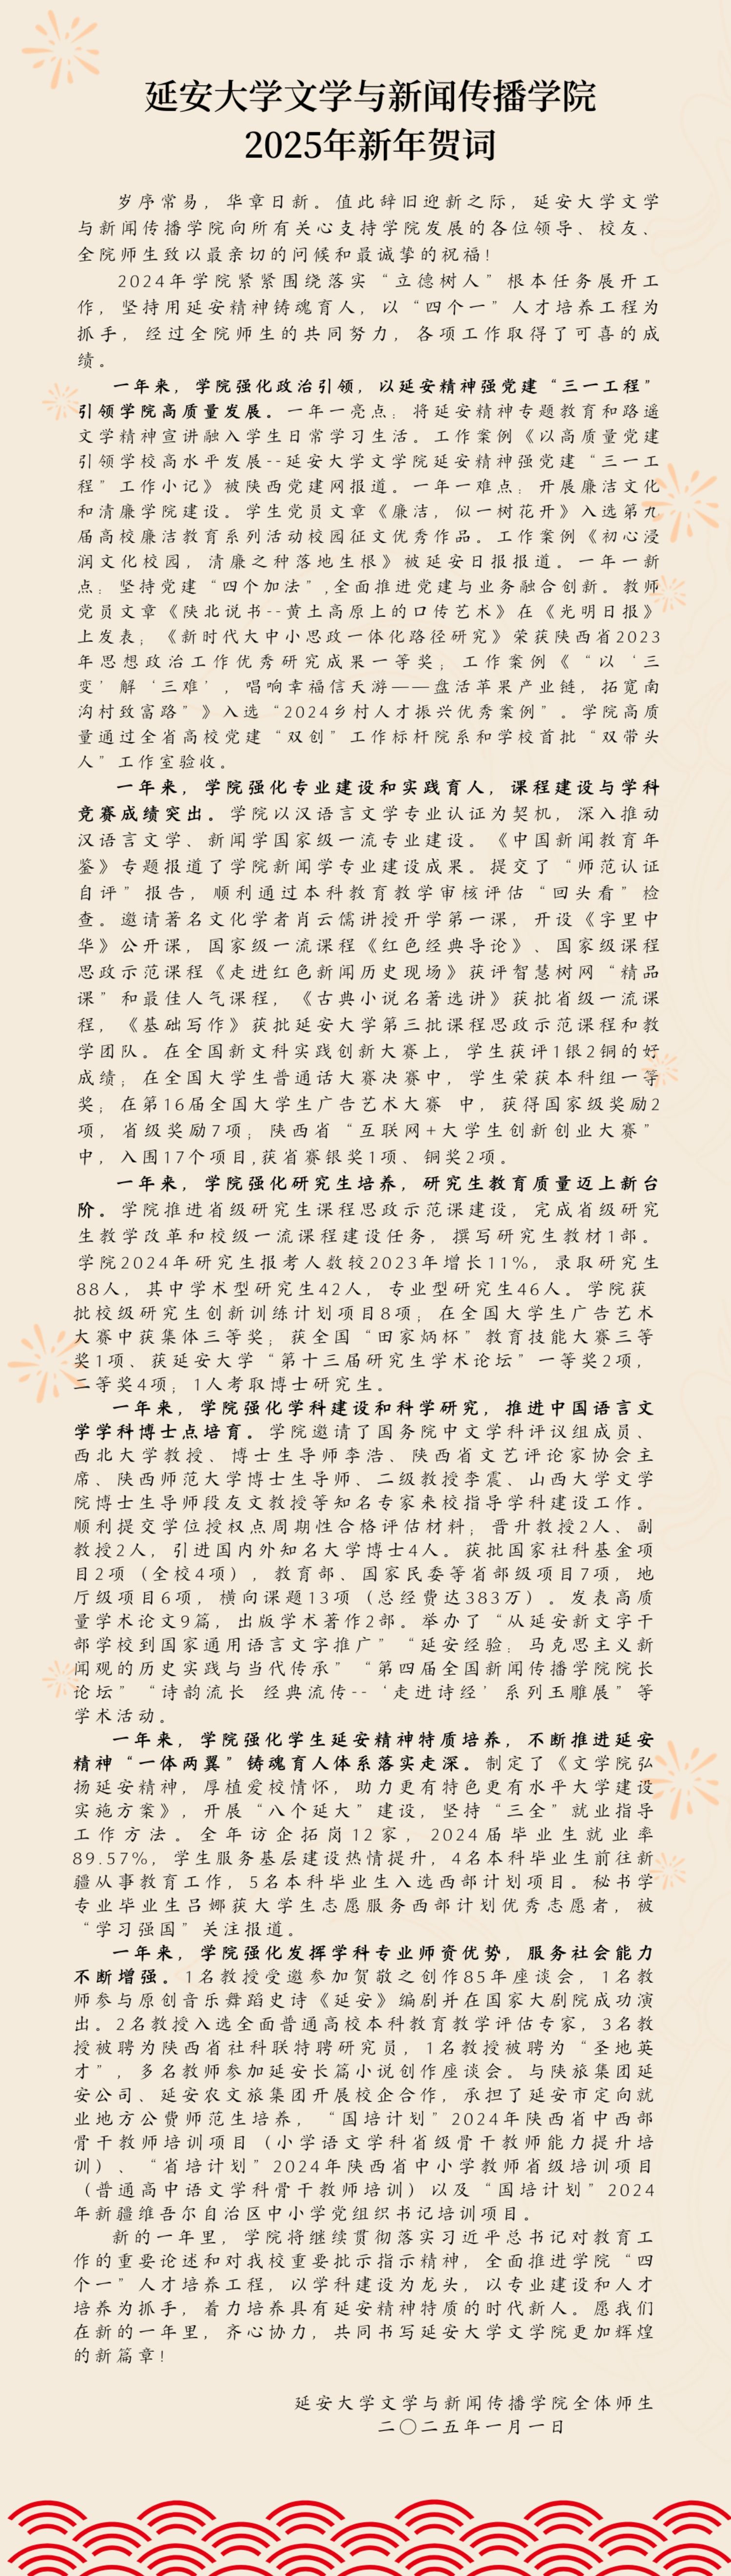 延安大学文学与新闻传播学院
2025年新年贺词
岁序常易，华章日新。值此辞旧迎新之际，延安大学文学
与新闻传播学院向所有关心支持学院发展的各位领导、校友、
全院师生致以最亲切的问候和最诚挚的祝福！
2024年学院紧紧围绕落实“立德树人”根本任务展开工
作，坚持用延安精神铸魂育人，以“四个一”人才培养工程为
抓手，经过全院师生的共同努力，各项工作取得了可喜的成
绩。
一年来，学院强化政治引领，以延安精神强党建“三一工程”
引领学院高质量发展。一年一亮点：将延安精神专题教育和路遥
文学精神宣讲融入学生日常学习生活。工作案例《以高质量党建
引领学校高水平发展--延安大学文学院延安精神强党建“三一工
程”工作小记》被陕西党建网报道。一年一难点：开展廉洁文化
和清廉学院建设。学生党员文章《廉洁，似一树花开》入选第九
届高校廉洁教育系列活动校园征文优秀作品。工作案例《初心浸
润文化校园，清廉之种落地生根》被延安日报报道。一年一新
点：坚持党建“四个加法”,全面推进党建与业务融合创新。教师
党员文章《陕北说书--黄土高原上的口传艺术》在《光明日报》
上发表；《新时代大中小思政一体化路径研究》荣获陕西省2023
年思想政治工作优秀研究成果一等奖；工作案例《“以‘三
变’解‘三难’，唱响幸福信天游——盘活苹果产业链，拓宽南
沟村致富路”》入选“2024乡村人才振兴优秀案例”。学院高质
量通过全省高校党建“双创”工作标杆院系和学校首批“双带头
人”工作室验收。
一年来，学院强化专业建设和实践育人，课程建设与学科
竞赛成绩突出。学院以汉语言文学专业认证为契机，深入推动
汉语言文学、新闻学国家级一流专业建设。《中国新闻教育年
鉴》专题报道了学院新闻学专业建设成果。提交了“师范认证
自评”报告，顺利通过本科教育教学审核评估“回头看”检
查。邀请著名文化学者肖云儒讲授开学第一课，开设《字里中
华》公开课，国家级一流课程《红色经典导论》、国家级课程
思政示范课程《走进红色新闻历史现场》获评智慧树网“精品
课”和最佳人气课程，《古典小说名著选讲》获批省级一流课
程，《基础写作》获批延安大学第三批课程思政示范课程和教
学团队。在全国新文科实践创新大赛上，学生获评1银2铜的好
成绩；在全国大学生普通话大赛决赛中，学生荣获本科组一等
奖；在第16届全国大学生广告艺术大赛 中，获得国家级奖励2
项，省级奖励7项；陕西省“互联网+大学生创新创业大赛”
中，入围17个项目,获省赛银奖1项、铜奖2项。
一年来，学院强化研究生培养，研究生教育质量迈上新台
阶。学院推进省级研究生课程思政示范课建设，完成省级研究
生教学改革和校级一流课程建设任务，撰写研究生教材1部。
学院2024年研究生报考人数较2023年增长11%，录取研究生
88人，其中学术型研究生42人，专业型研究生46人。学院获
批校级研究生创新训练计划项目8项；在全国大学生广告艺术
大赛中获集体三等奖；获全国“田家炳杯”教育技能大赛三等
奖1项、获延安大学“第十三届研究生学术论坛”一等奖2项，
二等奖4项；1人考取博士研究生。
一年来，学院强化学科建设和科学研究，推进中国语言文
学学科博士点培育。学院邀请了国务院中文学科评议组成员、
西北大学教授、博士生导师李浩、陕西省文艺评论家协会主
席、陕西师范大学博士生导师、二级教授李震、山西大学文学
院博士生导师段友文教授等知名专家来校指导学科建设工作。
顺利提交学位授权点周期性合格评估材料；晋升教授2人、副
教授2人，引进国内外知名大学博士4人。获批国家社科基金项
目2项（全校4项），教育部、国家民委等省部级项目7项，地
厅级项目6项，横向课题13项（总经费达383万）。发表高质
量学术论文9篇，出版学术著作2部。举办了“从延安新文字干
部学校到国家通用语言文字推广”“延安经验：马克思主义新
闻观的历史实践与当代传承”“第四届全国新闻传播学院院长
论坛”“诗韵流长 经典流传--‘走进诗经’系列玉雕展”等
学术活动。
一年来，学院强化学生延安精神特质培养，不断推进延安
精神“一体两翼”铸魂育人体系落实走深。制定了《文学院弘
扬延安精神，厚植爱校情怀，助力更有特色更有水平大学建设
实施方案》，开展“八个延大”建设，坚持“三全”就业指导
工作方法。全年访企拓岗12家，2024届毕业生就业率
89.57%，学生服务基层建设热情提升，4名本科毕业生前往新
疆从事教育工作，5名本科毕业生入选西部计划项目。秘书学
专业毕业生吕娜获大学生志愿服务西部计划优秀志愿者，被
“学习强国”关注报道。
一年来，学院强化发挥学科专业师资优势，服务社会能力
不断增强。1名教授受邀参加贺敬之创作85年座谈会，1名教
师参与原创音乐舞蹈史诗《延安》编剧并在国家大剧院成功演
出。2名教授入选全面普通高校本科教育教学评估专家，3名教
授被聘为陕西省社科联特聘研究员，1名教授被聘为“圣地英
才”，多名教师参加延安长篇小说创作座谈会。与陕旅集团延
安公司、延安农文旅集团开展校企合作，承担了延安市定向就
业地方公费师范生培养，“国培计划”2024年陕西省中西部
骨干教师培训项目（小学语文学科省级骨干教师能力提升培
训）、“省培计划”2024年陕西省中小学教师省级培训项目
（普通高中语文学科骨干教师培训）以及“国培计划”2024
年新疆维吾尔自治区中小学党组织书记培训项目。
新的一年里，学院将继续贯彻落实习近平总书记对教育工
作的重要论述和对我校重要批示指示精神，全面推进学院“四
个一”人才培养工程，以学科建设为龙头，以专业建设和人才
培养为抓手，着力培养具有延安精神特质的时代新人。愿我们
在新的一年里，齐心协力，共同书写延安大学文学院更加辉煌
的新篇章！
延安大学文学与新闻传播学院全体师生
二〇二五年一月一日